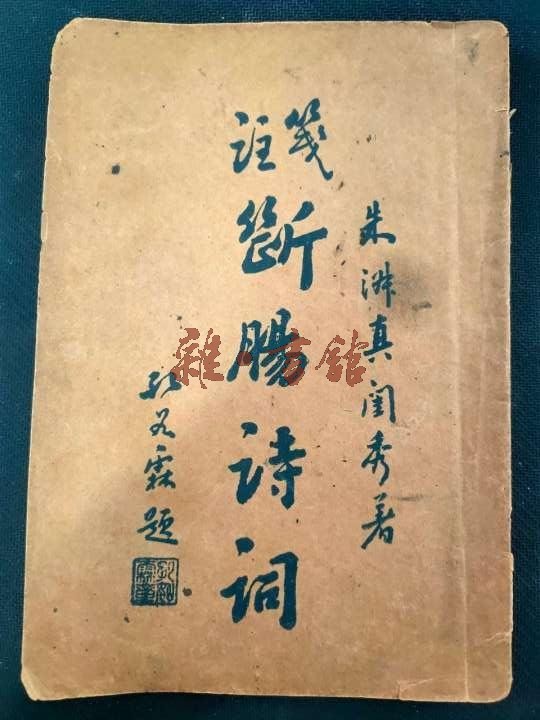 朱淑真閨秀著
箋註
斷腸詩詞
霖題
雜書館